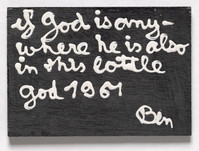 if God is any-
where he is also
in this bottle
god 1961
Ben